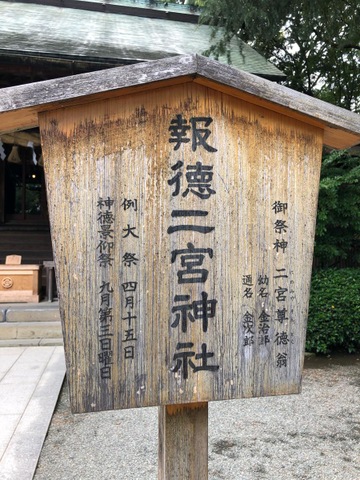 御祭神 二宮尊徳翁
幼名 金治郎
通名 金次郎
報徳二宮神社
例大祭 四月十五日
神徳景仰祭 九月第三日曜日